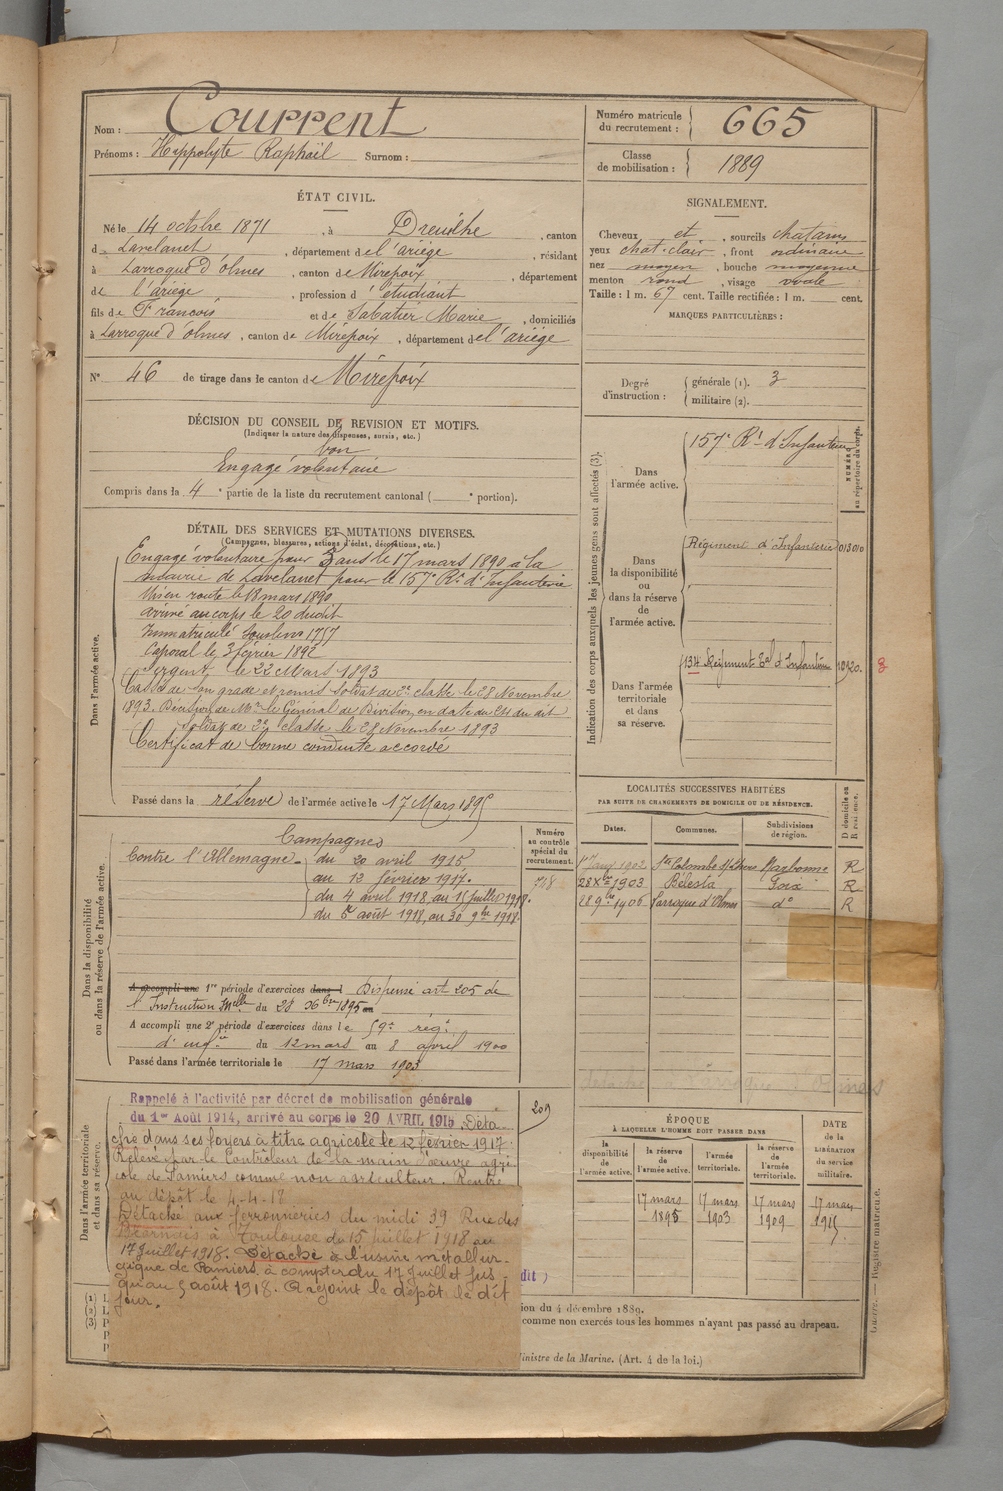 Nom : Courrent
Prénoms : Hyppolyte Raphaël Surnom :
Numéro matricule du recrutement : 665
Classe de mobilisation : 1889
ÉTAT CIVIL.
Né le 14 octobre 1871, à Dreuilhe, canton
d Lavelanet, département de l'ariège, résidant
à Larroque d'olmes, canton de Mirepoix, département
de l'ariège, profession d'étudiant
fils de Francois et de Sabatier Marie, domiciliés
à Larroque d'olmes, canton de Mirepoix, département de l'ariège
N° 46 de tirage dans le canton de Mirepoix
SIGNALEMENT.
Cheveux et, sourcils chatains
yeux chat-clair, front ordinaire
nez moyen, bouche moyenne
menton rond, visage ovale
Taille : 1 m. 67 cent. Taille rectifiée : 1 m. cent.
MARQUES PARTICULIÈRES :
Degré d'instruction : générale (1). 3
militaire (2).
DÉCISION DU CONSEIL DE REVISION ET MOTIFS.
(Indiquer la nature des dispenses, sursis, etc.)
bon
Engagé volontaire
Compris dans la 4e partie de la liste du recrutement cantonal ( e portion).
DÉTAIL DES SERVICES ET MUTATIONS DIVERSES.
(Campagnes, blessures, actions d'éclat, décorations, etc.)
Dans l'armée active.
Engagé volontaire pour 3 ans le 17 mars 1890 à la
mairie de Lavelanet pour le 157e Rt d'Infanterie
Mis en route le 18 mars 1890
arrivé au corps le 20 dudit
Immatriculé sous le no 1757
Caporal le 3 février 1892
Sergent le 22 Mars 1893
Cassé de son grade et remis soldat de 2e classe le 28 Novembre
1893. Décision de Mr le Général de Division en date du 24 du dit
Soldat de 2e classe le 28 Novembre 1893
Certificat de bonne conduite accordé
Passé dans la réserve de l'armée active le 17 Mars 1895
Indication des corps auxquels les jeunes gens sont affectés (3).
NUMÉRO au répertoire du corps.
Dans l'armée active.
157e Rt d'Infanterie
Dans la disponibilité ou dans la réserve de l'armée active.
Régiment d'Infanterie 013010
Dans l'armée territoriale et dans sa réserve.
134 Régiment Tal d'Infanterie 10920. 3
Dans la disponibilité ou dans la réserve de l'armée active.
Numéro au contrôle spécial du recrutement.
718
Campagnes
Contre l'Allemagne du 20 avril 1915
au 12 février 1917.
du 4 avril 1918, au 15 juillet 1918.
du 5 août 1918, au 30 9bre 1918.
A accompli une 1re période d'exercices dans l Dispensé art 205 de
l'Instruction Melle du 28 Xbre 1895 au
A accompli une 2e période d'exercices dans le 59e régt
d'infie du 12 mars au 8 avril 1900
Passé dans l'armée territoriale le 17 mars 1903
LOCALITÉS SUCCESSIVES HABITÉES
PAR SUITE DE CHANGEMENTS DE DOMICILE OU DE RÉSIDENCE.
Dates. Communes. Subdivisions de région. D domicile ou R résidence.
1902 Ste Colombe s/l'hers Narbonne R
28 Xbre 1903 Bélesta Foix R
28 9bre 1906 Larroque d'Olmes do R
détaché Larroque d'Olmes
Dans l'armée territoriale et dans sa réserve.
Rappelé à l'activité par décret de mobilisation générale
du 1er Août 1914, arrivé au corps le 20 AVRIL 1915. Déta-
ché dans ses foyers à titre agricole le 12 février 1917.
Relevé par le Contrôleur de la main d'œuvre agri-
cole de Pamiers comme non agriculteur. Rentré
au dépôt le 4-4-18
Détaché aux ferronneries du midi 39 Rue des
Béarnais à Toulouse du 15 juillet 1918 au
17 Juillet 1918. Détaché à l'usine métallur-
gique de Pamiers à compter du 17 Juillet jus-
qu'au 5 août 1918. A rejoint le dépôt le dit
jour.
209
ÉPOQUE
À LAQUELLE L'HOMME DOIT PASSER DANS
la disponibilité de l'armée active. la réserve de l'armée active. l'armée territoriale. la réserve de l'armée territoriale. DATE de la LIBÉRATION du service militaire.
17 mars 1895 17 mars 1903 17 mars 1909 17 mars 1915
dit )
(1) L
(2) L
(3) P
ion du 4 décembre 1889.
comme non exercés tous les hommes n'ayant pas passé au drapeau.
Ministre de la Marine. (Art. 4 de la loi.)
Guerre. — Registre matricule.